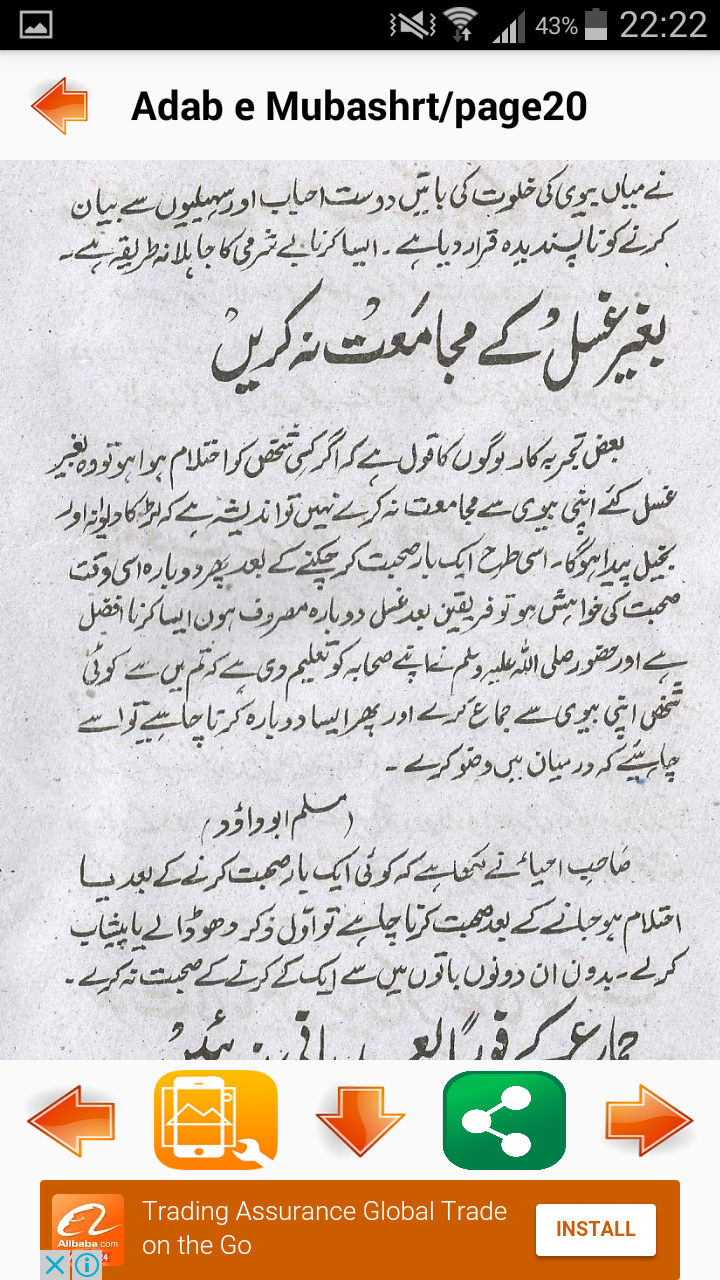 43% 22:22
Adab e Mubashrt/page20
نے میاں بیوی کی خلوت کی باتیں دوست احباب اور سہیلیوں سے بیان
کرنے کو ناپسندیدہ قرار دیا ہے ۔ ایسا کرنا بے شرمی کا جاہلانہ طریقہ ہے ۔
بغیر غسل کے مجامعت نہ کریں
بعض تجربہ کار لوگوں کا قول ہے کہ اگر کسی شخص کو احتلام ہوا ہو تو وہ بغیر
غسل کئے اپنی بیوی سے مجامعت نہ کرے نہیں تو اندیشہ ہے کہ لڑکا دیوانہ اور
بخیل پیدا ہوگا۔ اسی طرح ایک بار صحبت کر چکنے کے بعد پھر دوبارہ اسی وقت
صحبت کی خواہش ہو تو فریقین بعد غسل دوبارہ مصروف ہوں ایسا کرنا افضل
ہے اور حضور صلی اللہ علیہ وسلم نے اپنے صحابہ کو تعلیم دی ہے کہ تم میں سے کوئی
شخص اپنی بیوی سے جماع کرے اور پھر ایسا دوبارہ کرنا چاہیے تو اسے
چاہیئے کہ درمیان میں وضو کرے ۔
(مسلم ابو داؤد)
صاحب احیاء نے لکھا ہے کہ کوئی ایک بار صحبت کرنے کے بعد یا
احتلام ہو جانے کے بعد صحبت کرنا چاہے تو اوّل ذکر دھو ڈالے یا پیشاب
کرلے ۔ بدون ان دونوں باتوں میں سے ایک کے کرنے کے صحبت نہ کرے ۔
Alibaba.com
Trading Assurance Global Trade
on the Go
INSTALL